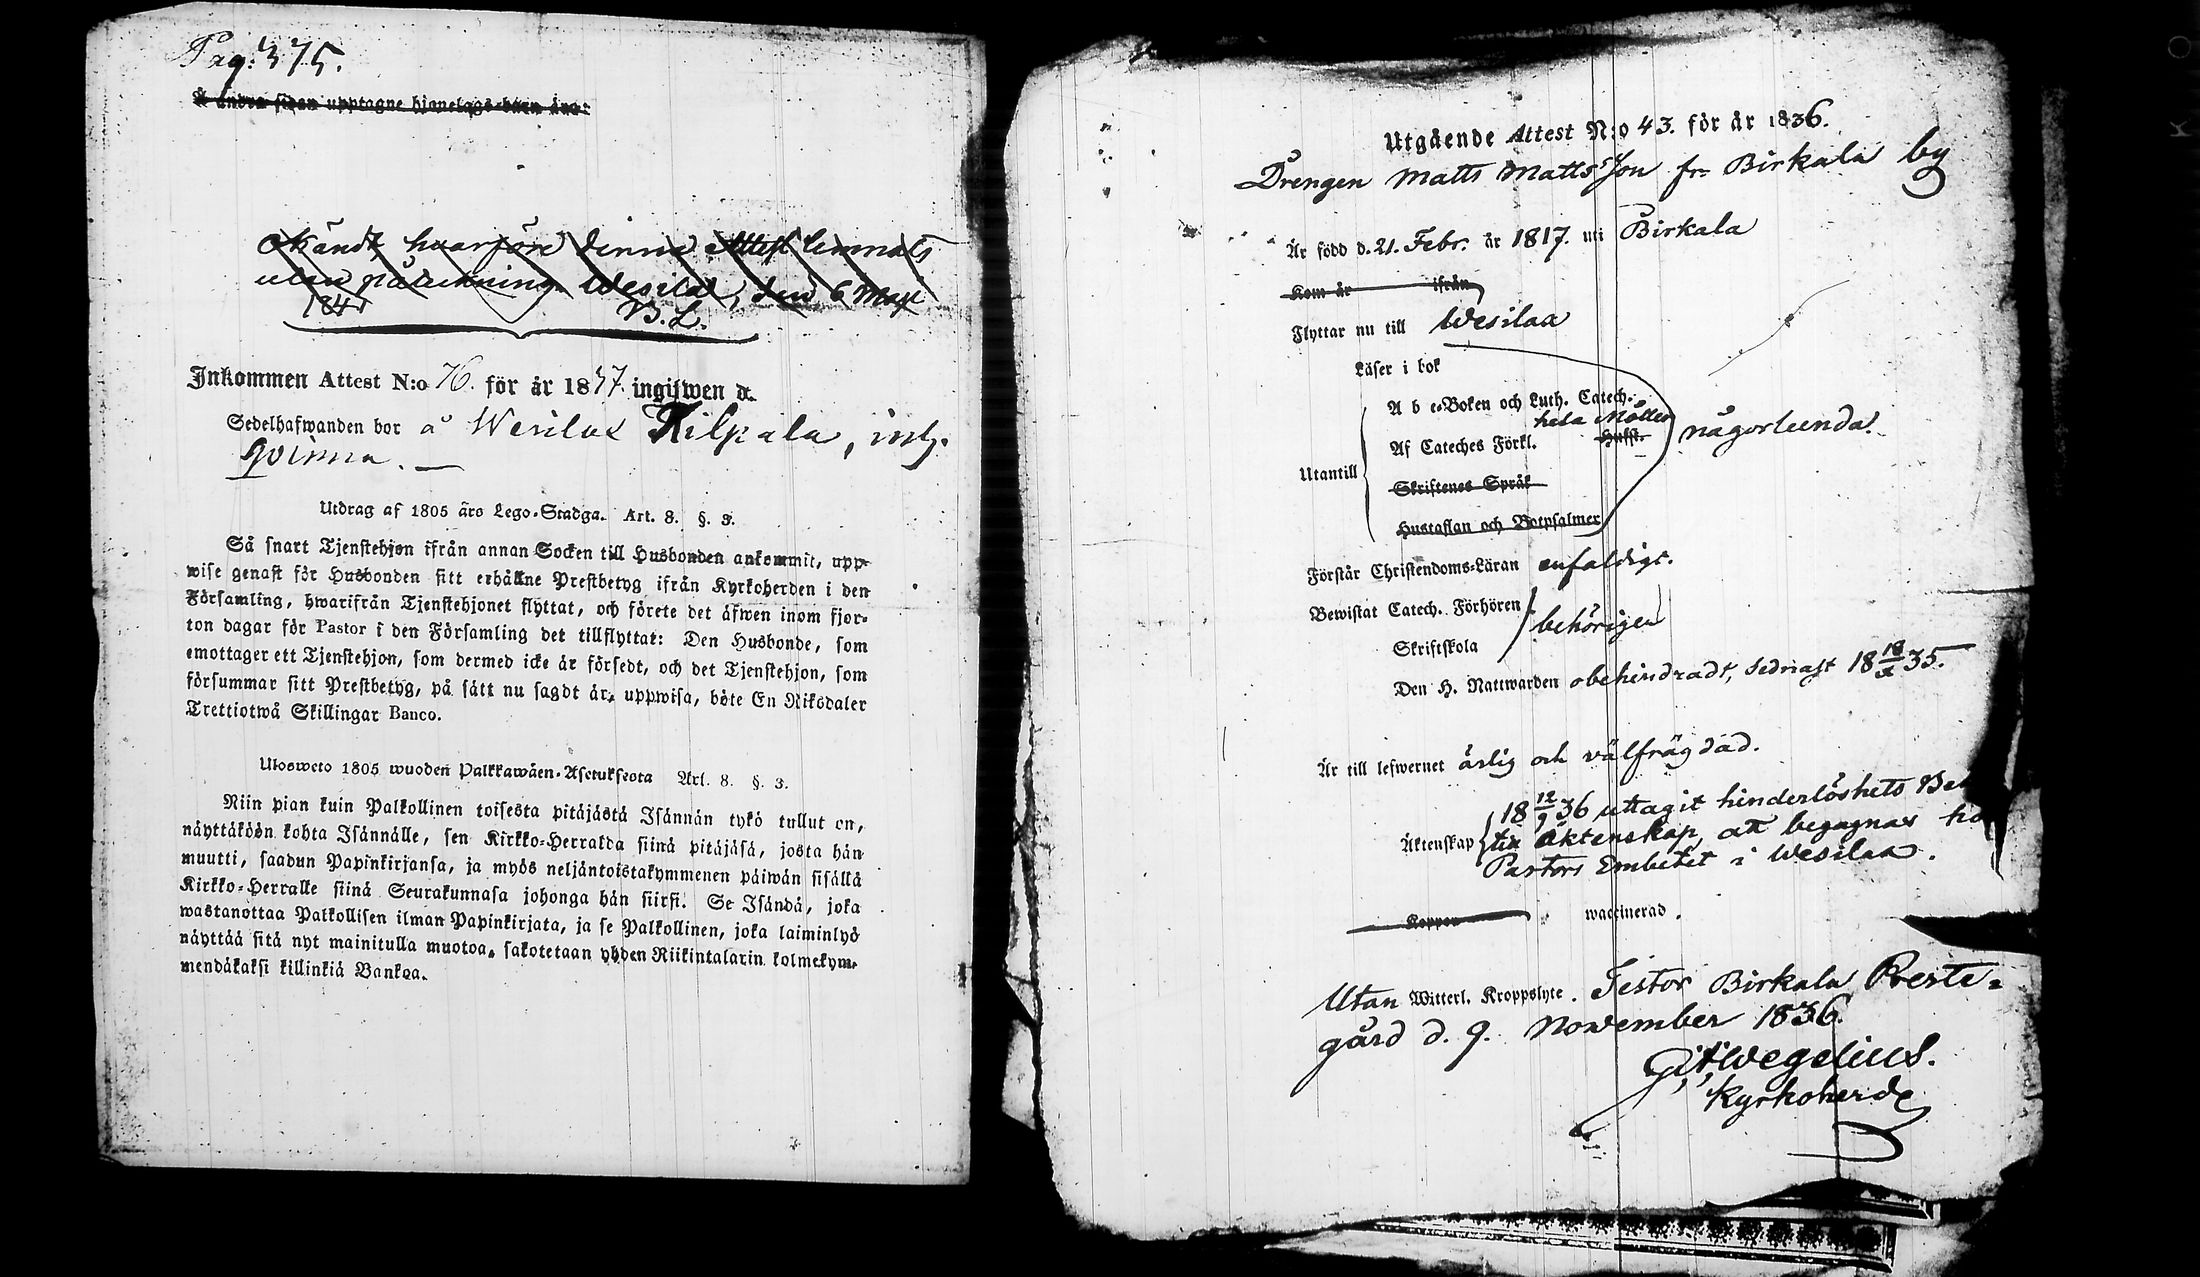 Pag: 375.
Å andra sidan upptagne hjonelags-barn äro:
okändt hvarföre denna Attest lemnats
utan påteckning. Wesilax, den 6 Maji
1841
B. L.
Inkommen Attest N:o 76. för år 1837. ingifwen d.
Sedelhafwanden bor å Wesilax Kilpala, inh.
qvinna.
Utdrag af 1805 års Lego-Stadga. Art. 8. §. 3.
Så snart Tjenstehjon ifrån annan Socken till Husbonden ankommit, upp-
wise genast för Husbonden sitt erhållne Prestbetyg ifrån Kyrkoherden i den
Församling, hwarifrån Tjenstehjonet flyttat, och förete det äfwen inom fjor-
ton dagar för Pastor i den Församling det tillflyttat: Den Husbonde, som
emottager ett Tjenstehjon, som dermed icke är försedt, och det Tjenstehjon, som
försummar sitt Prestbetyg, på sätt nu sagdt är, uppwisa, böte En Riksdaler
Trettiotwå Skillingar Banco.
Ulosweto 1805 wuoden Palkkawäen-Asetuksesta Art. 8. §. 3.
Niin pian kuin Palkollinen toisesta pitäjästä Isännän tykö tullut on,
näyttäköön kohta Isännälle, sen Kirkko-Herralda siinä pitäjäsä, josta hän
muutti, saadun Papinkirjansa, ja myös neljäntoistakymmenen päiwän sisällä
Kirkko-Herralle siinä Seurakunnasa johonga hän siirsi. Se Isändä, joka
wastanottaa Palkollisen ilman Papinkirjata, ja se Palkollinen, joka laiminlyö
näyttää sitä nyt mainitulla muotoa, sakotetaan yhden Riikintalarin kolmekym-
mendäkaksi killinkiä Bankoa.
Utgående Attest N:o 43. för år 1836.
Drengen Matts Mattsson fr. Birkala by
Är född d. 21. Febr. år 1817. uti Birkala
Kom år ifrån
Flyttar nu till Wesilax
Läser i bok
A b c-Boken och Luth. Catech.
hela Möller
Af Cateches Förkl. Hufst.
någorlunda.
Utantill
Skriftenes Språk
Hustaflan och Botpsalmer
Förstår Christendoms-Läran enfaldigt.
Bewistat Catech. Förhören
behörigen
Skriftskola
Den H. Nattwarden obehindradt, sednast 18 18/ 35.
Är till lefwernet ärlig och välfrägdad.
18 12/9 36 uttagit hinderlöshets
Äktenskap till Äktenskap, att begagnas hos
Pastors Embetet i Wesilax.
Koppor waccinerad.
Utan Witterl. Kroppslyte. Testor Birkala Preste-
gård d. 9. November 1836.
G: A: Wegelius.
Kyrkoherde